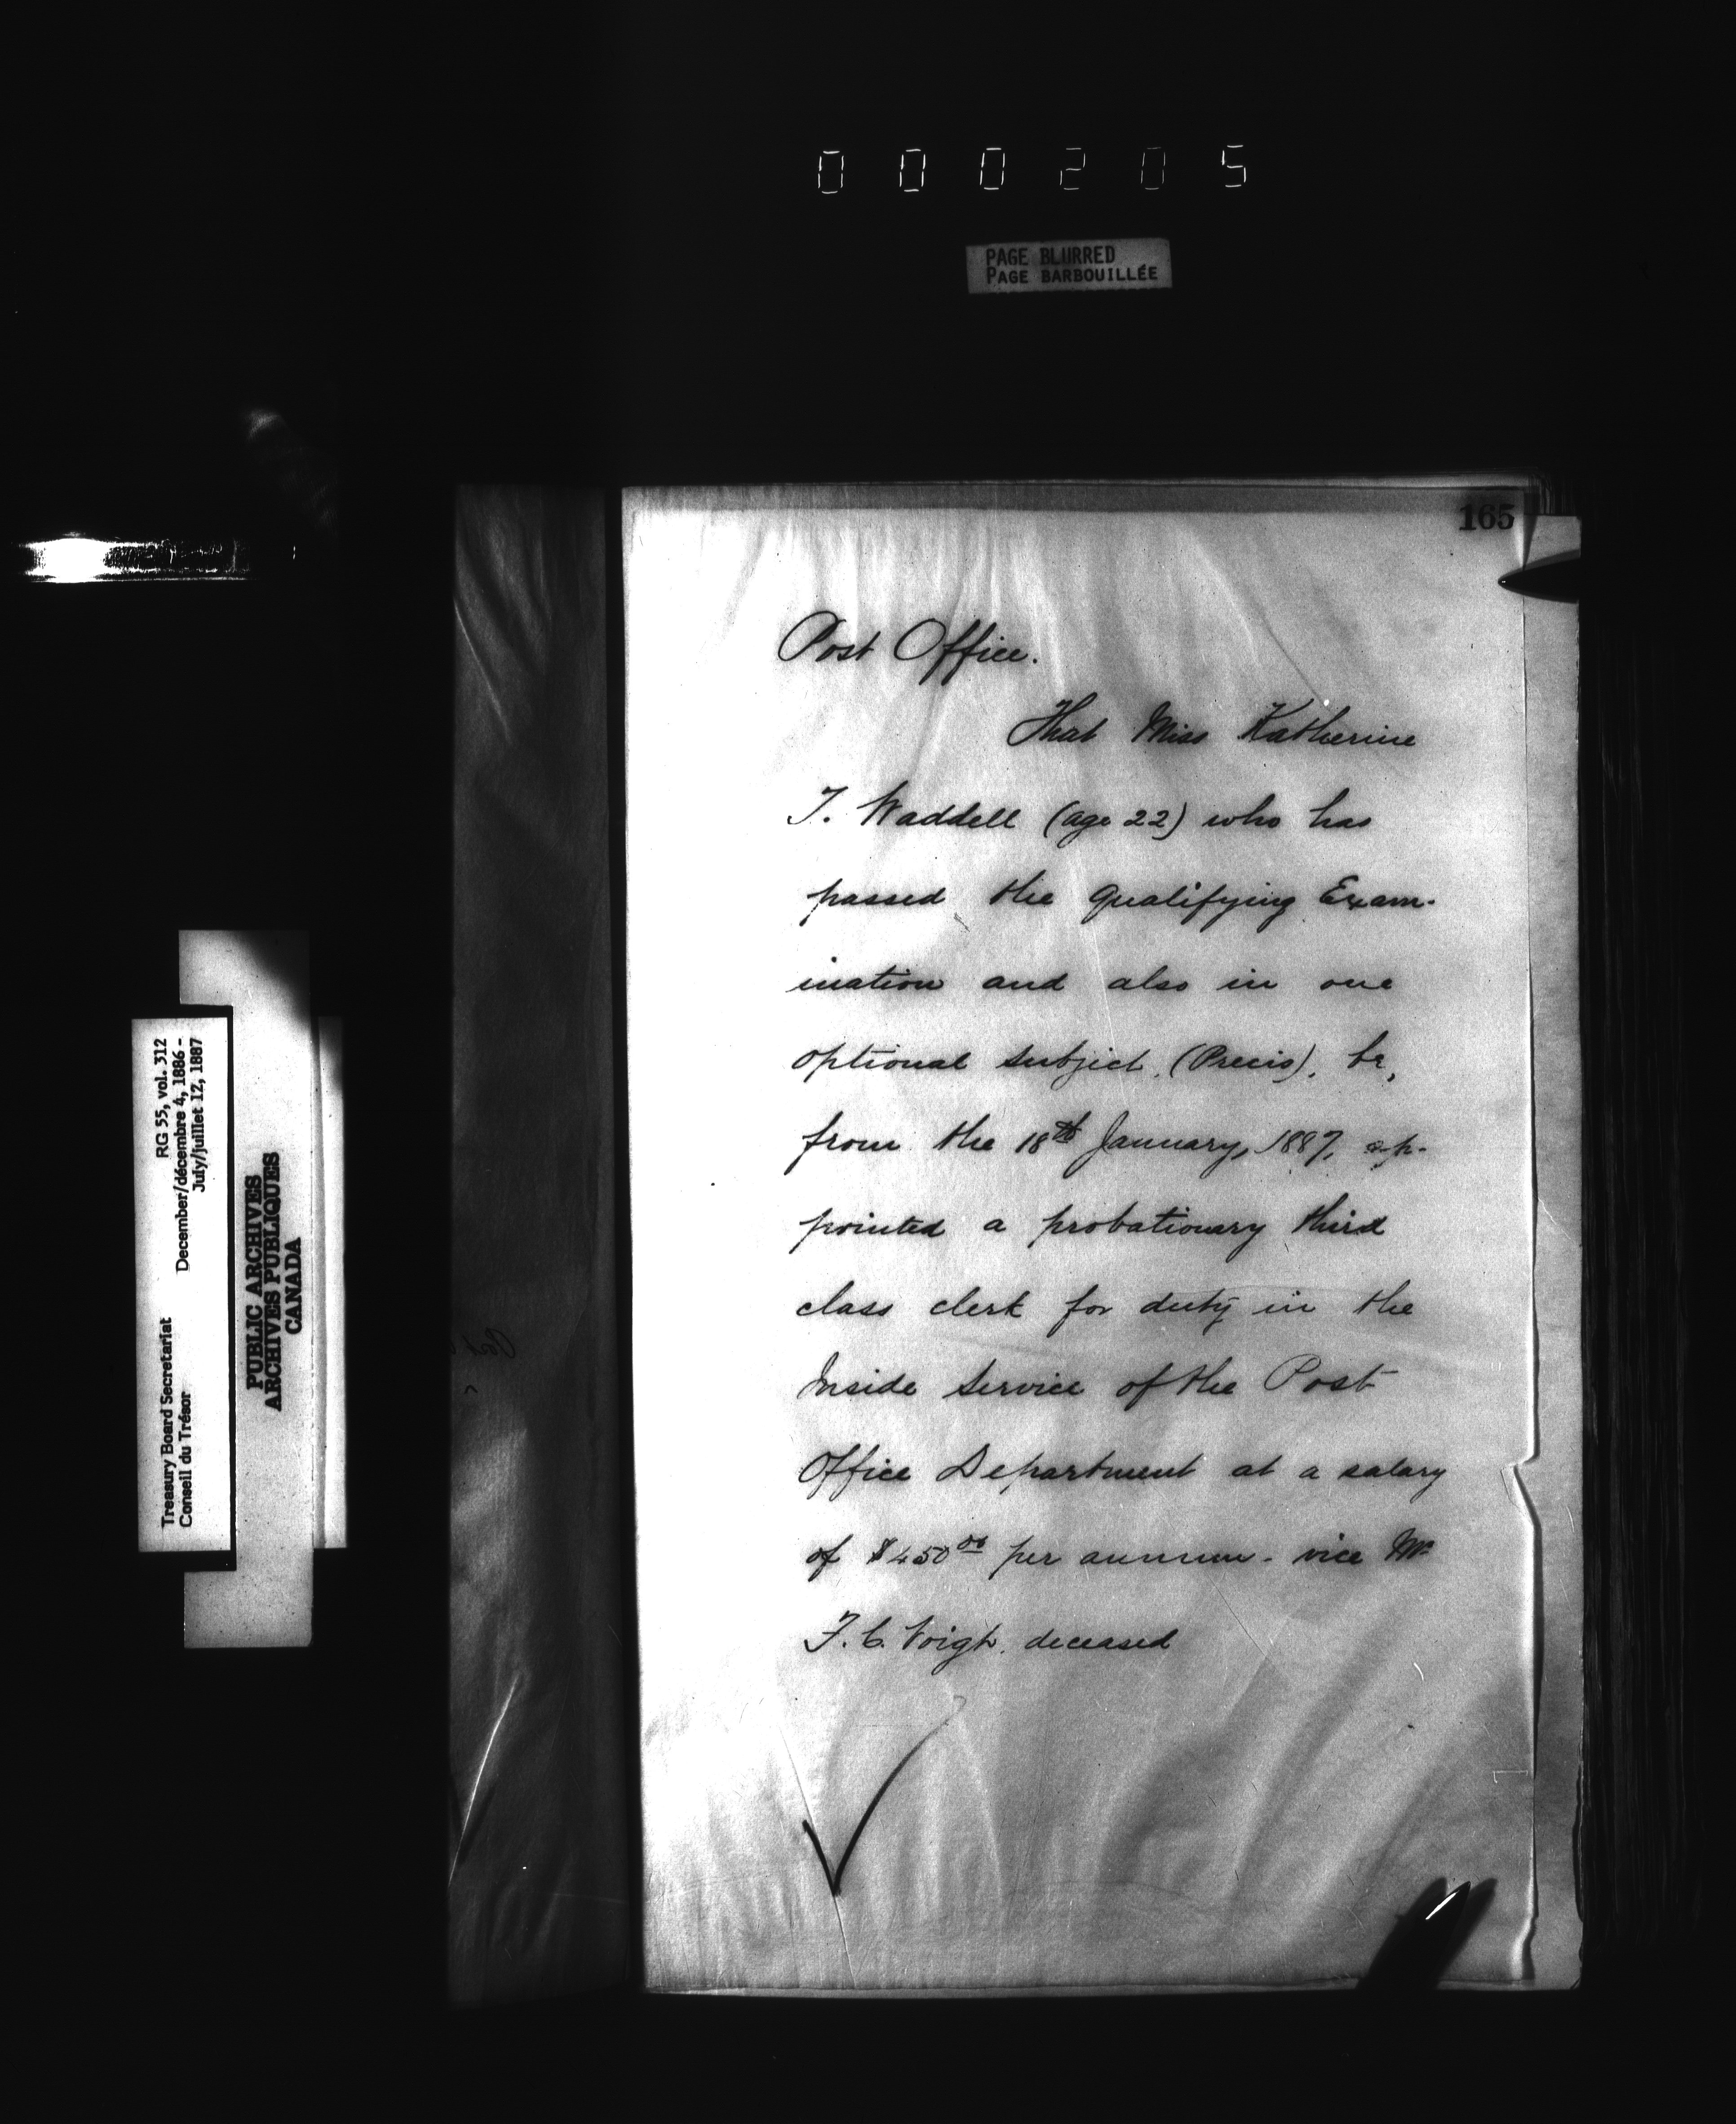 000205
PAGE BLURRED
PAGE BARBOUILLÉE
165
Post Office.
That Miss Katherine
T. Waddell (age 22) who has
passed the qualifying Exam-
ination and also in one
optional subject, (Precis), be,
from the 18th January, 1887, ap-
pointed a probationary third
class clerk for duty in the
Inside Service of the Post
Office Department at a salary
of $450 00 per annum - vice Mr
F. C. Voigt, deceased
Treasury Board Secretariat RG 55, vol. 312
Conseil du Trésor December/décembre 4, 1886 -
July/juillet 12, 1887
PUBLIC ARCHIVES
ARCHIVES PUBLIQUES
CANADA